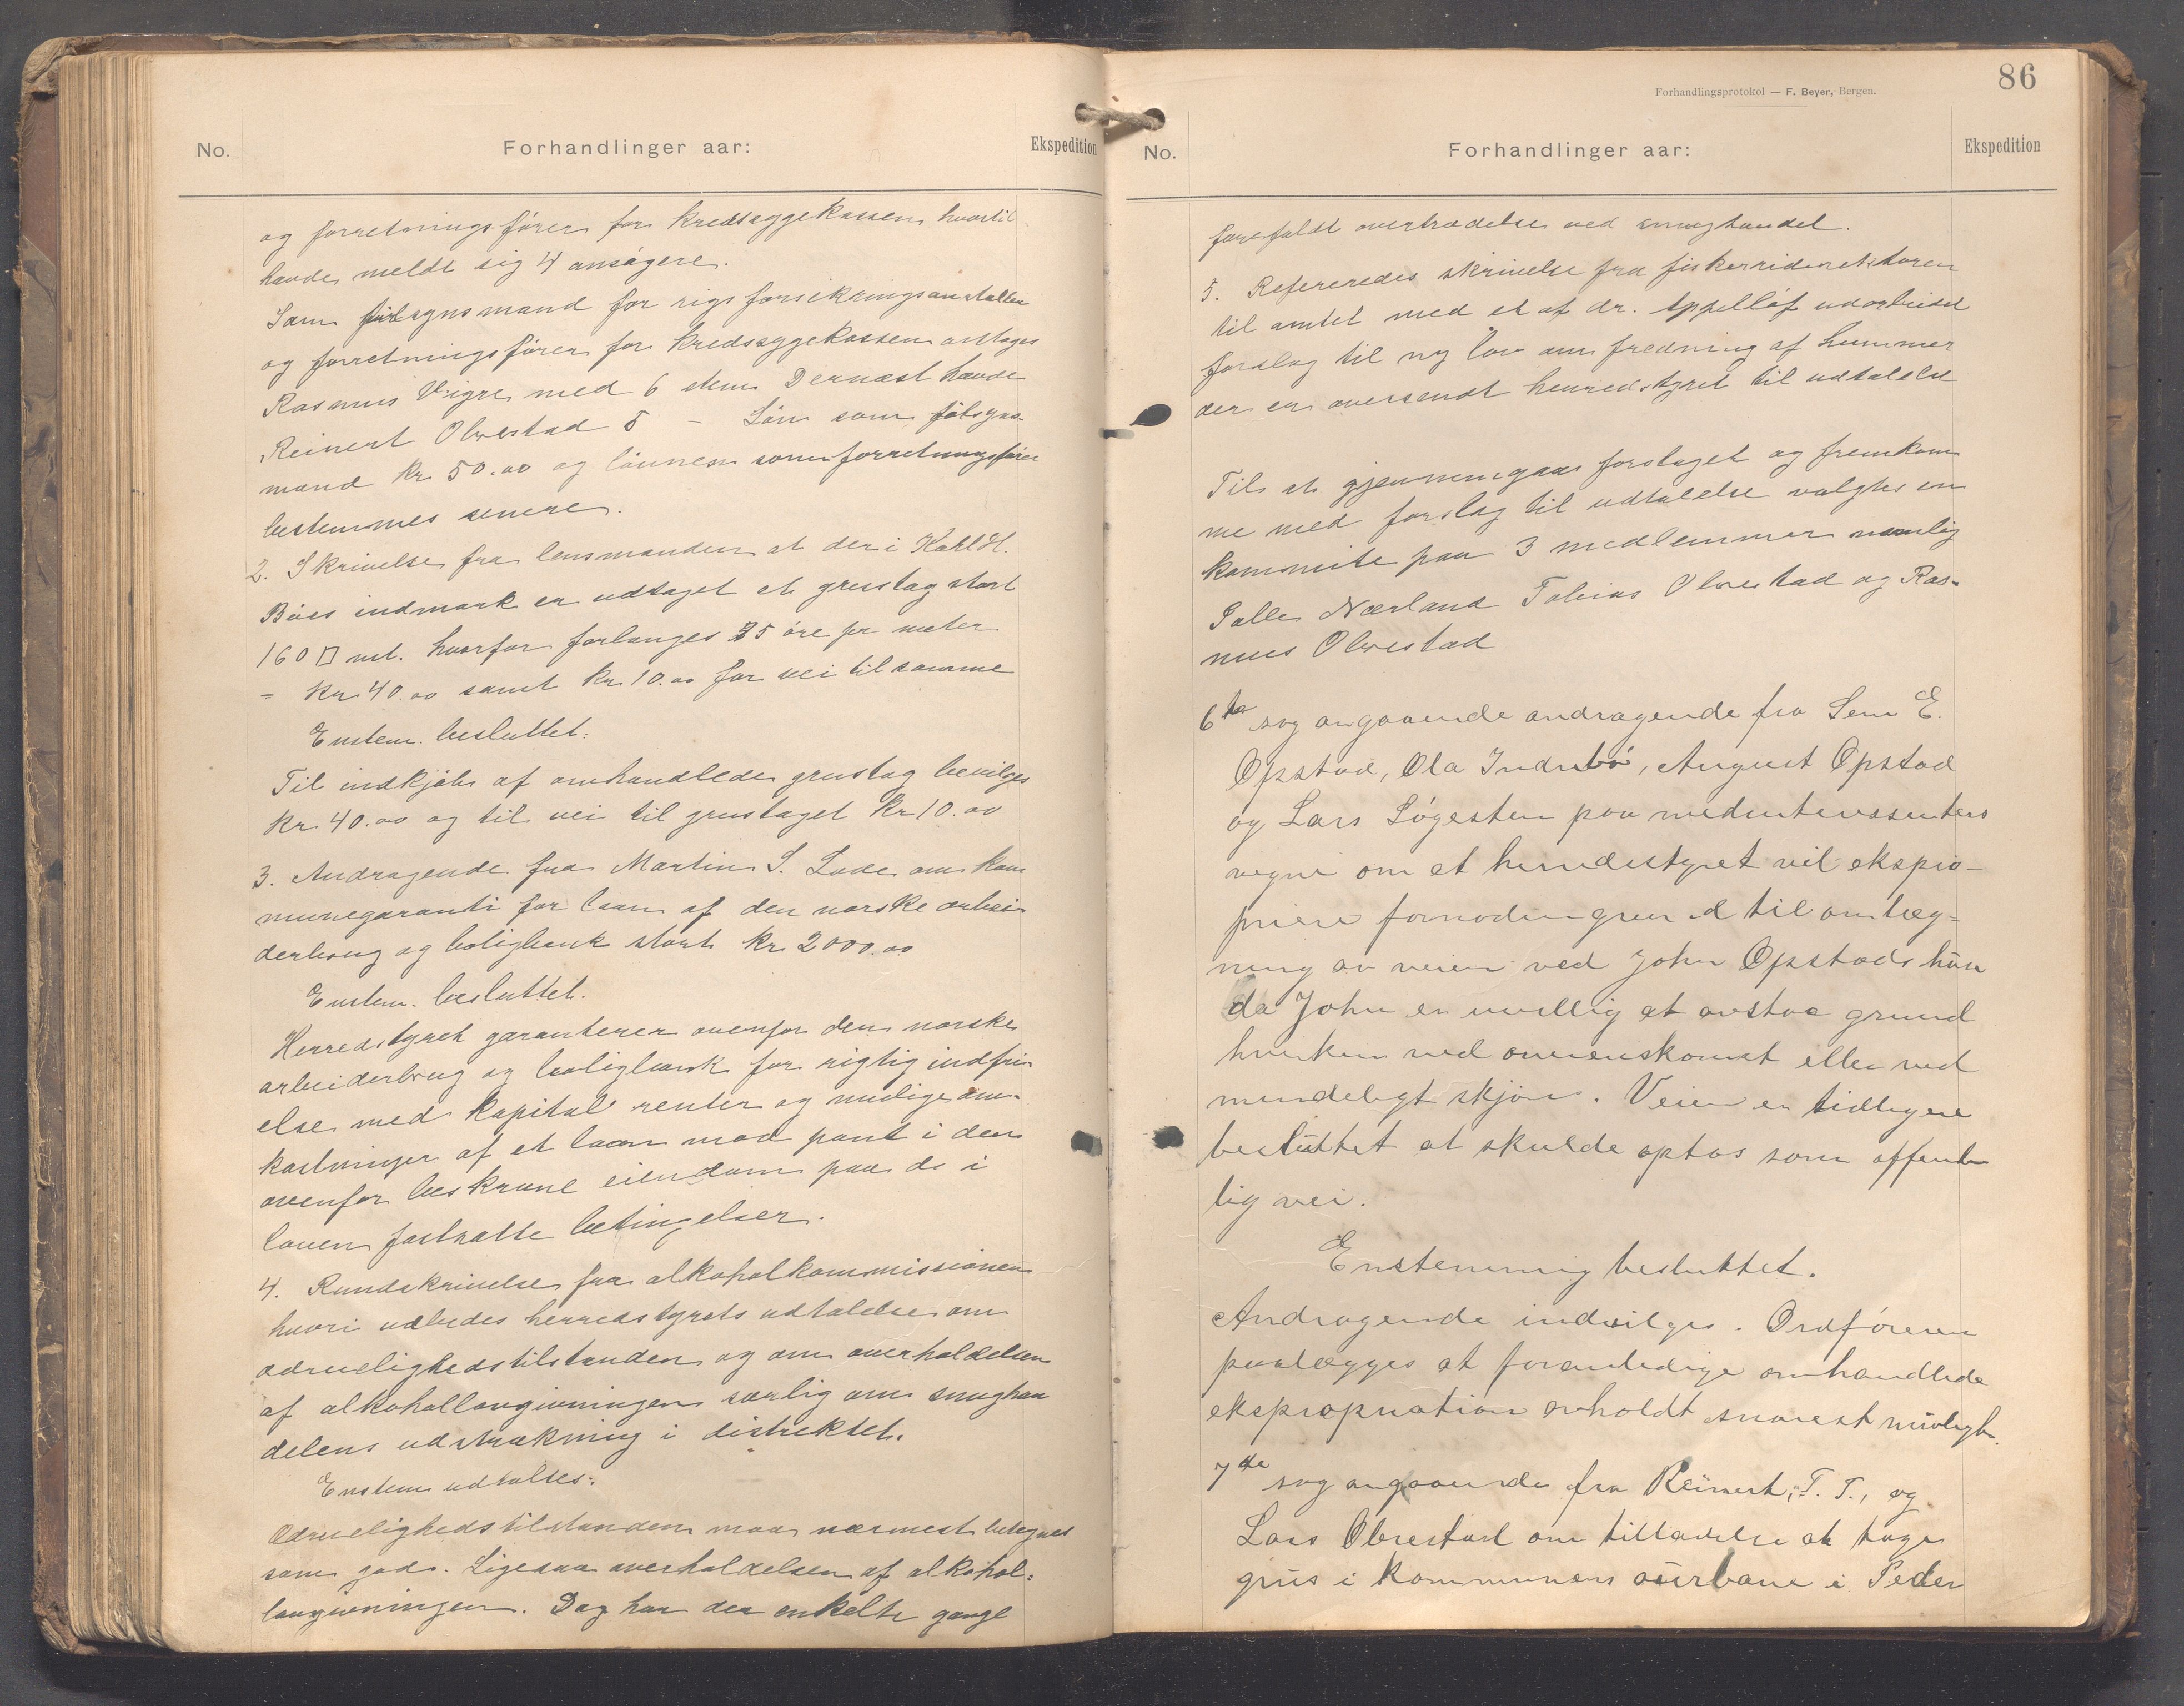 No.
Forhandlinger aar:
Ekspedition
og forretningsfører for kredssygekassen hvortil
havde meldt sig 4 ansøgere.
Som tilsynsmand for rigsforsikringsanstalten
og forretningsfører for kredssygekassen antages
Rasmus Vigre med 6 stem. Dernæst havde
Reinert Obrestad 5 – Løn som tilsyns-
mand kr 50.00 og lønnen som forretningsfører
bestemmes senere.
2. Skrivelse fra lensmanden at der i Karl H.
Bøes indmark er udtaget et grustag stort
160 □ mt. hvorfor forlanges 25 øre pr meter
= kr 40.00 samt kr 10.00 for vei til samme
Enstem. besluttet:
Til indkjøb af omhandlede grustag bevilges
kr. 40.00 og til vei til grustaget kr 10.00
3. Andragende fra Martin S. Lode om kom
munegaranti for laan af den norske arbei
derbrug og boligbank stort kr 2000.00
Enstem. besluttet.
Herredstyret garanterer ovenfor den norske
arbeiderbrug og boligbank for rigtig indfri
else med kapital renter og mulige om-
kostninger af et laan mod pant i den
ovenfor beskrevne eiendom paa de i
loven fastsatte betingelser.
4. Rundskrivelse fra alkoholkommissionen
hvori udbedes herredstyrets udtalelse om
ædruelighedstilstanden og om overholdelsen
af alkohollovgivningen særlig om smughan
delens udstrækning i distriktet.
Enstem udtaltes:
Ædruelighedstilstanden maa nærmest betegnes
som god. Ligesaa overholdelsen af alkohol=
lovgivningen. Dog har der enkelte gange
Forhandlingsprotokol — F. Beyer, Bergen.
86
No.
Forhandlinger aar:
Ekspedition
forefaldt overtrædelse ved smughandel.
5. Refereredes skrivelse fra fiskerridirektøren
til amtet med et af dr. Appelløf udarbeidet
forslag til ny lov om fredning af hummer
der er oversendt herredstyret til udtalelse
Til at gjennemgaa forslaget og fremkom
me med forslag til udtalelse valgtes en
kommite paa 3 medlemmer nemlig
Salle Nærland Tobias Obrestad og Ras-
mus Obrestad
6te sag angaaende andragende fra Sem E.
Opstad, Ola Indrebø, August Opstad
og Lars Løgesten paa medinteressenters
vegne om at herredestyret vil ekspro-
priere fornøden grund til omlæg-
ning av veien ved John Opstads hus
da John er uvillig at avstaa grund
hverken ved overenskomst eller ved
mindeligt skjøn. Veien er tidligere
besluttet at skulde optas som offent
lig vei.
Enstemmig besluttet.
Andragende indvilges. Ordføreren
paalægges at foranledige omhandlede
ekspropriation avholdt snarest muligt.
7de sag angaaende fra Reinert, T. T., og
Lars Obrestad om tilladelse at tage
grus i kommunens aurbane i Peder